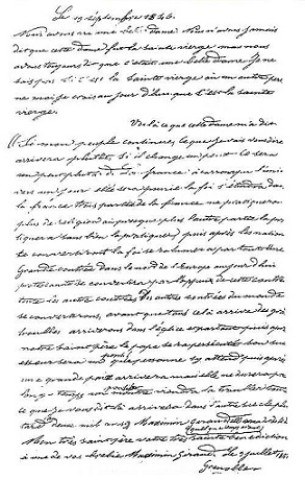 Le 19 septembre 1846.
Nous avons vu une belle dame. Nous n'avons jamais
dit que cette dame fut la Sainte vierge mais nous
avons toujours dit que c'était une belle Dame. Je ne
sais pas si c'est la Sainte vierge ou un autre per
ne moi je crois aujourd'hui que c'est la Sainte
vierge.
Voilà ce que cette dame m'a dit
Si mon peuple continue, ce que je vais vous dire
arrivera plus tôt, si il change un peu ce sera
un peu plus tard. La france a corrompu l'uni
vers un jour elle sera punie. la foi s'éteindra dans
la france trois parts de la france ne pratiqueron
plus de religion ou presque plus l'autre partie la pra
tiquera sans bien la pratiquer. puis après les nation
se convertiront la foi se rallumera partout. Une
Grande contrée dans le nord de l'Europe aujourd'hui
protestante se convertira par l'appui de cette contrée
toute les autre contrées du monde
se convertiron. avant que tout cela arrive des gr
troubles arriveron dans l'église et partout puis après
notre Saint père le pape sera persécuté. Son suc
esseur sera un pontife que personne s'y attend puis après
une grande paix arrivera mais elle ne durera pa
longtemps un monstre viendra la troubler tout
ce que je vous dis là arrivera dans l'autre siècle plus
tard deux mille ans Maximin Giraud
Mon très Saint père votre Sainte bénédiction
à une de vos brebis Maximin Giraud, ce 3 juillet 185
Grenoble